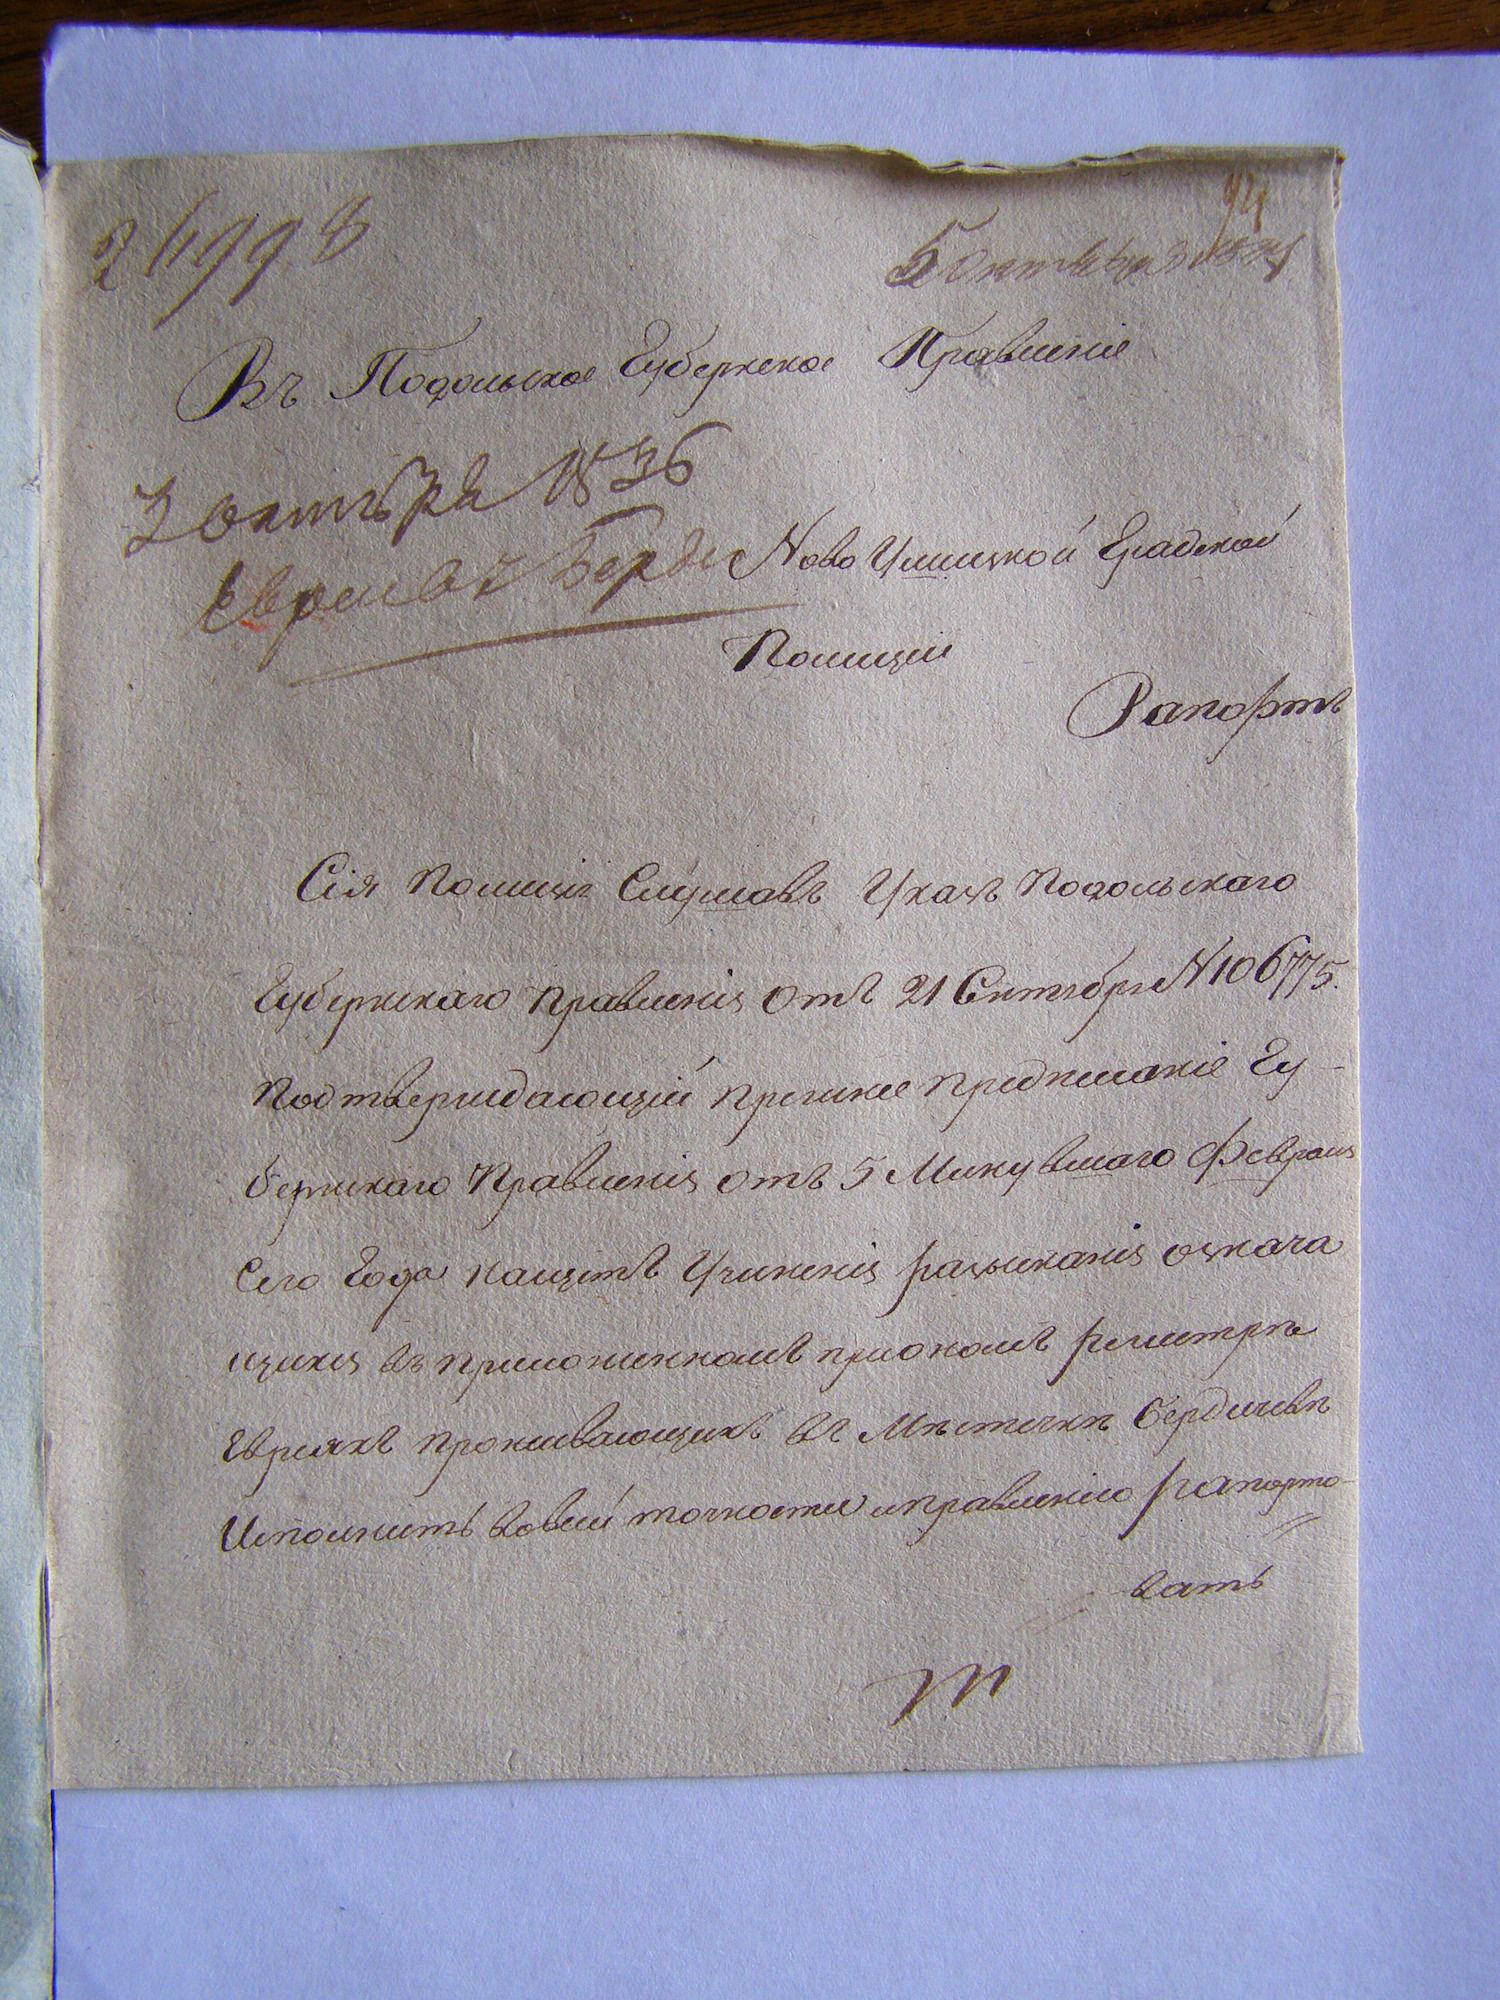 94
24998
5 октября
Въ Подольское Губернское Правление
3 октября 1836
Евреи въ Берди
Ново Ушицкой Градской
Полиціи
Рапортъ
Сія Полиція Слушавъ Указъ Подольскаго
Губернскаго Правленія отъ 21 Сентября №106775.
Подтверждающій Прежнее Предписаніе Гу-
бернскаго Правленія отъ 5 Минувшаго Февраля
Сего Года Насщетъ Учиненія разысканія
въ приложенномъ при ономъ реистрѣ
Евреяхъ проживающихъ въ Мѣстечкѣ Бердичевѣ
Исполнить вовсей точности иправленію рапорто-
вать